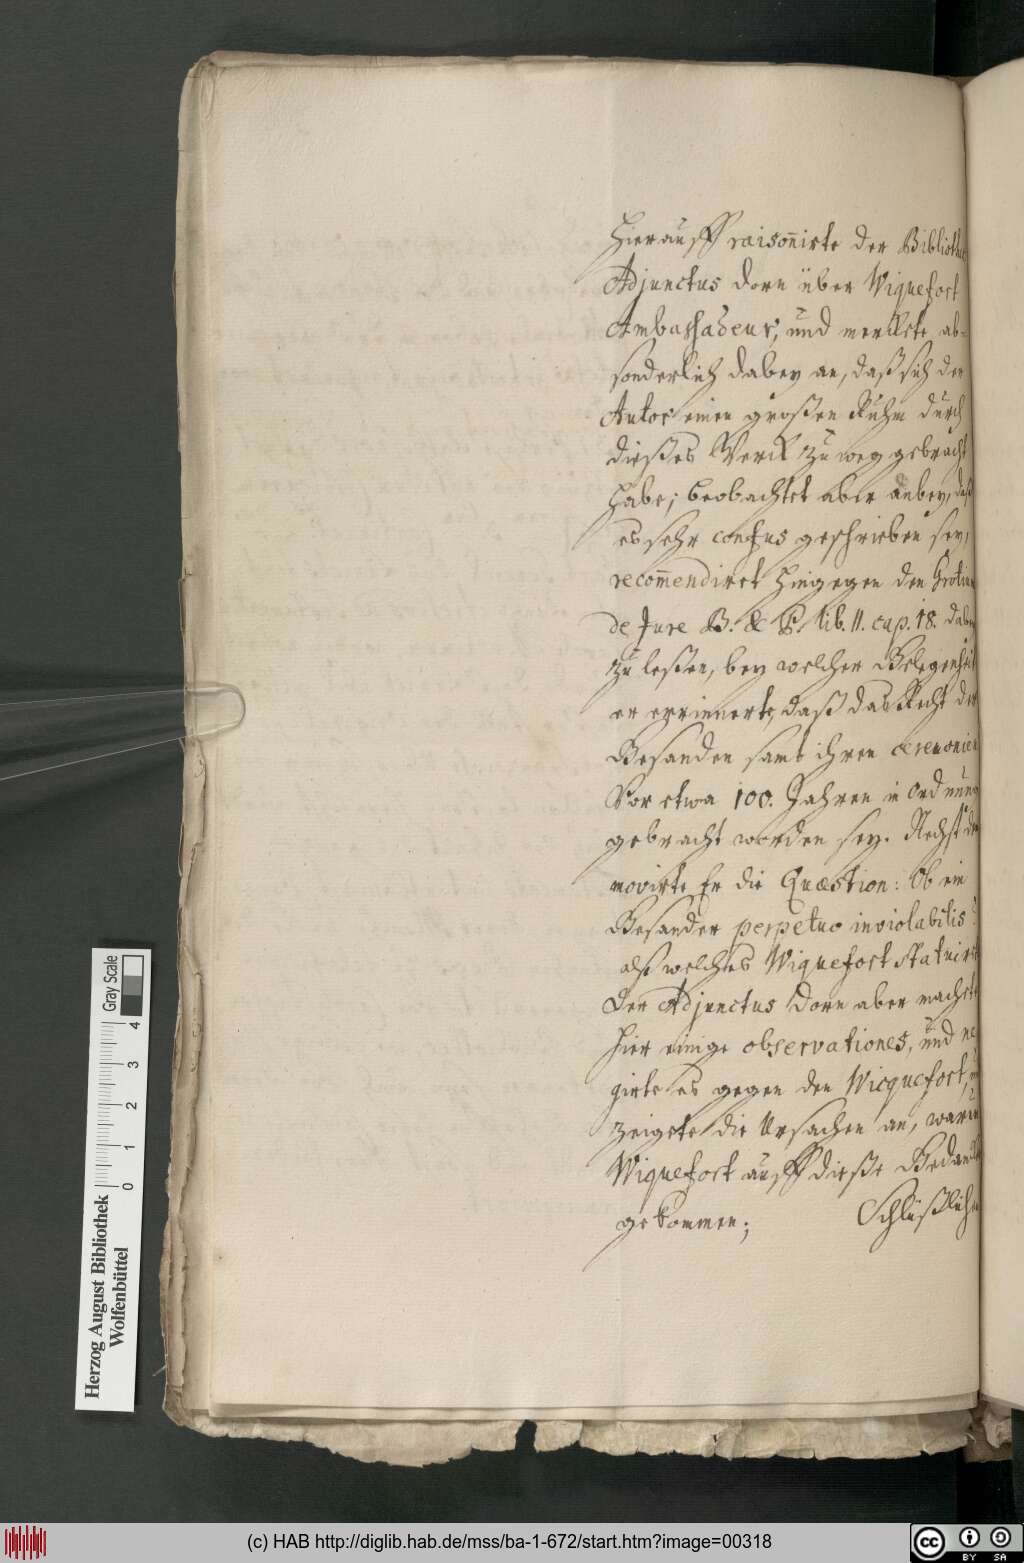 Hierauff raisoñirte der Bibliothec
Adjunctus Dorn über Wiquefort
Ambassadeur, und merckte ab-
sonderlich dabey an, daß sich der
Autor einen großen Ruhm durch
dießes Werck zu weg gebracht
habe; beobachtet aber anbey, daß
es sehr confus geschrieben sey,
recom̃endiret hingegen den Grotium
de Jure B. & P. lib. II. cap. 18. dabey
zu leßen, bey welcher Gelegenheit
er errinnerte, daß das Recht der
Gesanden samt ihren ceremonien
Vor etwa 100. Jahren in Ordnung
gebracht worden sey. Nechst dem
movirte Er die Quæstion: Ob ein
Gesander perpetuo inviolabilis?
alß welches Wiquefort statuiret
Der Adjunctus Dorn aber machete
hier einige observationes, und ne
girte es gegen den Wicquefort, und
zeigete die Ursachen an, warum
Wiquefort auff dieße Gedancken
gekommen; Schlüßlichen
Herzog August Bibliothek
Wolfenbüttel
Gray Scale
0 1 2 3 4
(c) HAB http://diglib.hab.de/mss/ba-1-672/start.htm?image=00318
cc BY SA